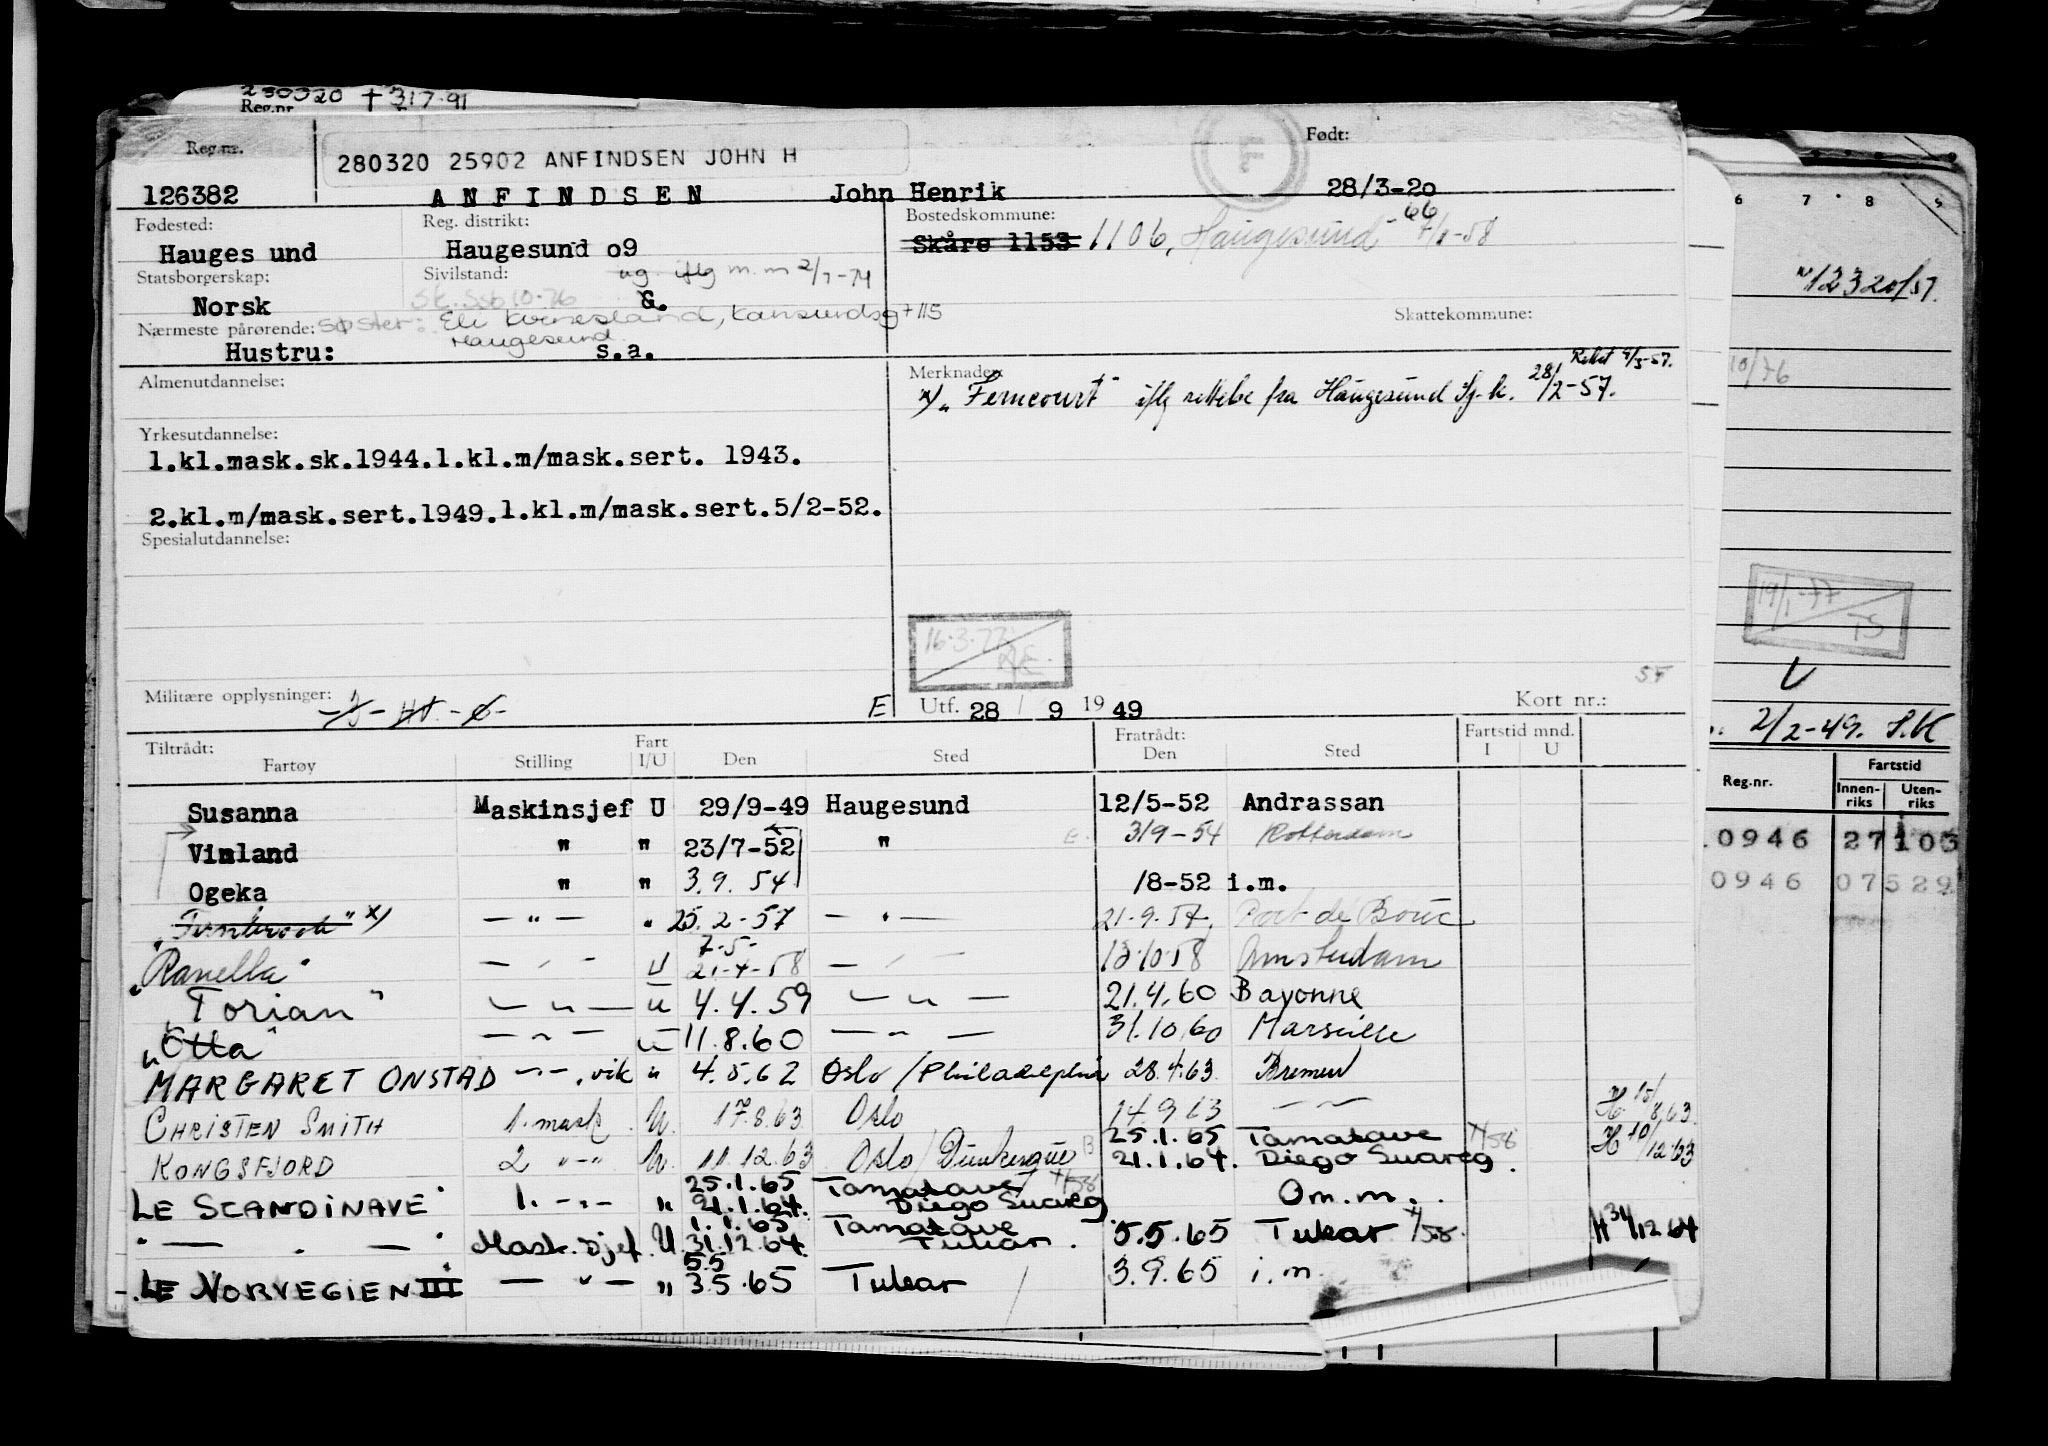 230320 + 31 7-91
Reg.nr.
Reg.nr. 280320 25902 ANFINDSEN JOHN H Født:
126382 ANFINDSEN John Henrik 28/3-20
Fødested: Reg. distrikt: Bostedskommune:
Haugesund Haugesund o9 Skåre 1153 1106, Haugesund 66 -58
Statsborgerskap: Sivilstand: ug. iflg m.m 2/7-74
Norsk Sk. Ssb 10-76 G.
Nærmeste pårørende: Søster: Eli Kvinesland, +115 Skattekommune:
Haugesund
Hustru: s.a.
Almenutdannelse: Merknader: Rettet 4/3-57.
x) "Ferncourt" iflg rettelse fra Haugesund Sj.k. 28/2-57.
Yrkesutdannelse:
1.kl.mask.sk.1944.1.kl.m/mask.sert. 1943.
2.kl.m/mask.sert.1949.1.kl.m/mask.sert.5/2-52.
Spesialutdannelse:
16.3.77
57
Militære opplysninger: E Utf. 28 / 9 1949 Kort nr.:
Tiltrådt: Fart Fratrådt: Fartstid mnd.
Fartøy Stilling I/U Den Sted Den Sted I U
Susanna Maskinsjef U 29/9-49 Haugesund 12/5-52 Andrassan
Vinland " " 23/7-52 " E. 3/9-54 Rotterdam
Ogeka " " 3.9. 54 /8-52 i.m.
" x) — " — " 25. 2-57 — " — 21.9.57. Port de Bouc
7-5-
"Ranella" — " — U 21-4-58 — " — 13.10.58 Amsterdam
"Torian" — " — U 4.4.59 — " — 21.4.60 Bayonne
"Otta" — " — U 11.8.60 — " — 31.10.60 Marseille
MARGARET ONSTAD — " —, vik " 4.5.62 Oslo / Philadelphia 28.4.63 Bremen
CHRISTEN SMITH 1. mask U. 17.8.63 Oslo 14.9.63 — " — H 15/8.63
25.1.65 Tamatave 7/58
KONGSFJORD 2 -"- U. 11.12.63 Oslo / Dunkerque B 21.1.64. Diego Suarez. H 10/12.63
25.1.65 Tamatave 7/58
LE SCANDINAVE 1. -"- " 21.1.64. Diego Suarez Om.m.
1.1.65 Tamatave
" — " — " Mask.sjef. U. 31.12.64. Tulear. 5.5.65 Tulear 7/58. H 31/12 64
5.5
LE NORVEGIEN III — " — " 3.5.65 Tulear 3.9.65 i.m.
6 7 8 9
12320/57.
10/76
19/1-77
TS
2/2-49. S.K
Reg.nr. Fartstid
Innenriks Utenriks
0946 27103
0946 07529